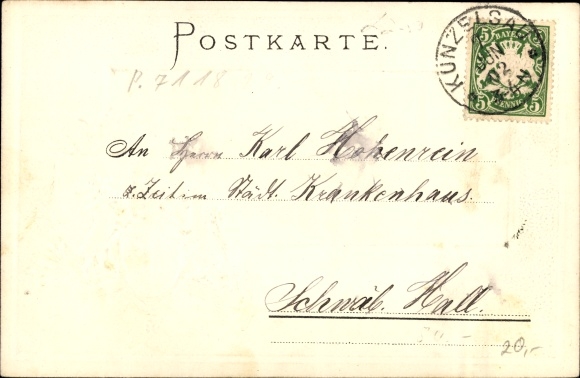 POSTKARTE.
KÜNZELSAU
5 BAYERN 5
5 PFENNIG 5
P. 7118
An Herrn Karl Hohenrein
z. Zeit im Städt. Krankenhaus.
Schwäb. Hall.
20,-